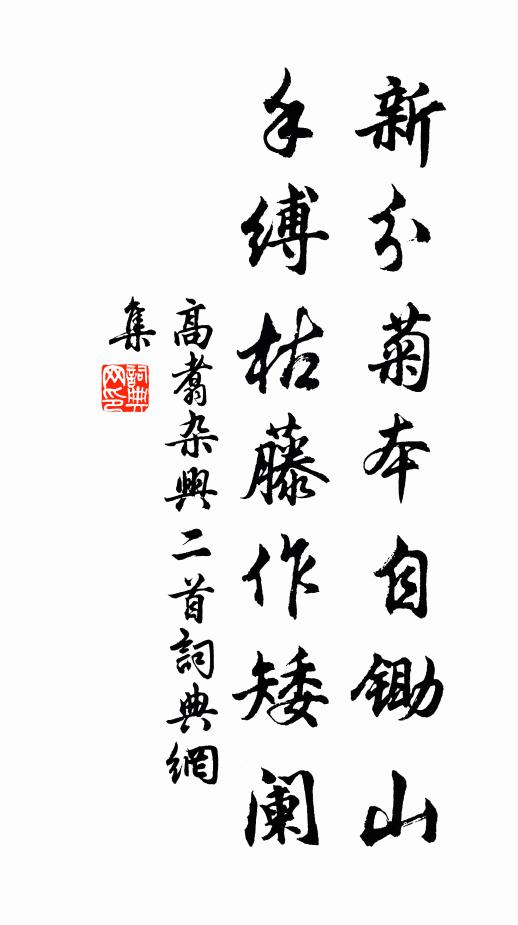 新分菊本自锄山
手缚枯藤作矮阑
高翥杂興二首詞典網
集
詞典
网印